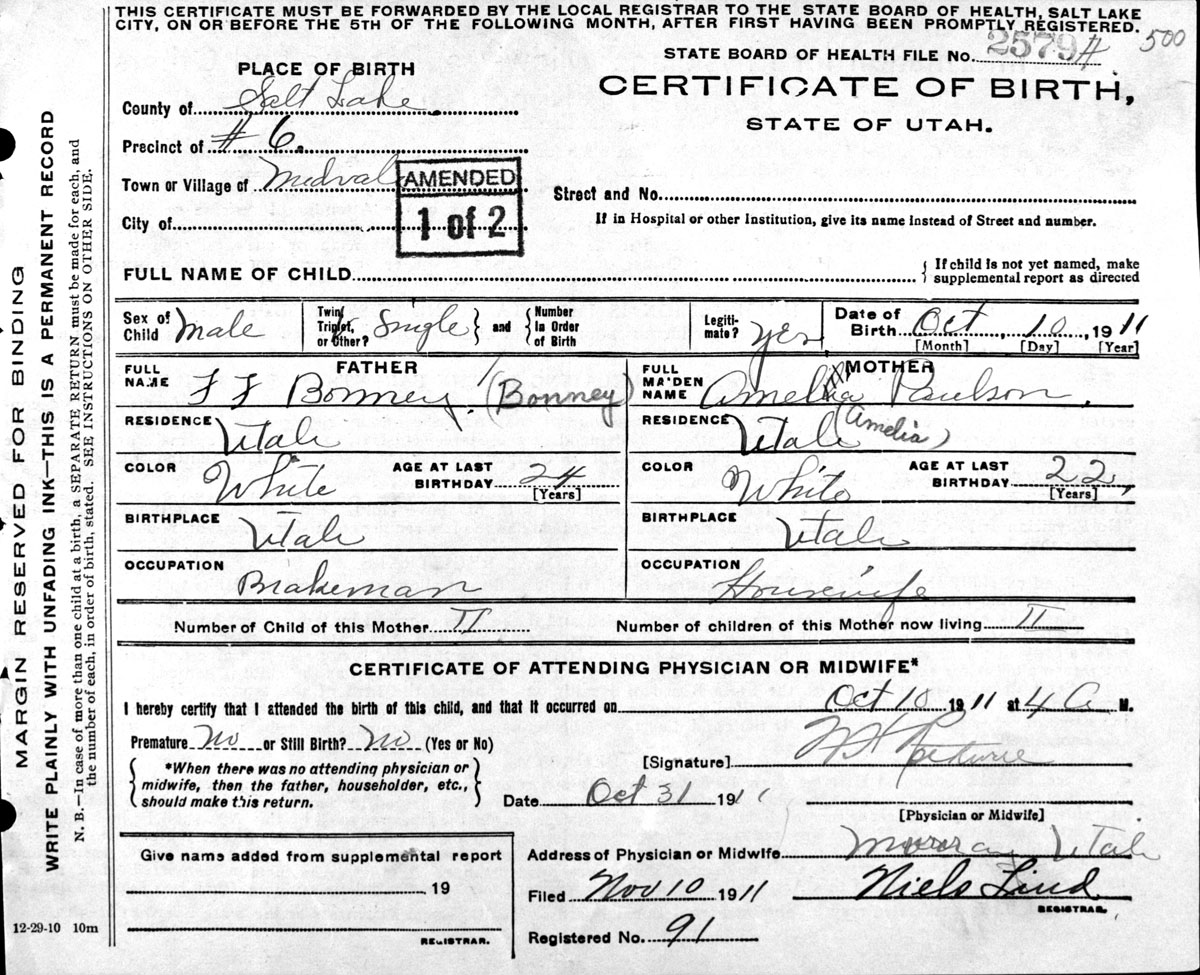 THIS CERTIFICATE MUST BE FORWARDED BY THE LOCAL REGISTRAR TO THE STATE BOARD OF HEALTH, SALT LAKE
CITY, ON OR BEFORE THE 5TH OF THE FOLLOWING MONTH, AFTER FIRST HAVING BEEN PROMPTLY REGISTERED.
500
STATE BOARD OF HEALTH FILE No. 2579#
CERTIFICATE OF BIRTH,
STATE OF UTAH.
PLACE OF BIRTH
County of Salt Lake.
Precinct of #6.
Town or Village of Midval
AMENDED
1 of 2
City of
Street and No.
If in Hospital or other Institution, give its name instead of Street and number.
FULL NAME OF CHILD
{ If child is not yet named, make
supplemental report as directed
Sex of Child Male
Twin Triplet, or Other? Single
and { Number in Order of Birth
Legiti-mate? yes
Date of Birth Oct 10 1911
[Month] [Day] [Year]
FATHER
FULL NAME F F Bonney. (Bonney)
RESIDENCE Utah
COLOR White
AGE AT LAST BIRTHDAY 24
[Years]
BIRTHPLACE Utah
OCCUPATION Brakeman
MOTHER
FULL MAIDEN NAME Amelia Paulson.
RESIDENCE Utah (Amelia)
COLOR White
AGE AT LAST BIRTHDAY 22
[Years]
BIRTHPLACE Utah
OCCUPATION Housewife
Number of Child of this Mother II
Number of children of this Mother now living II
CERTIFICATE OF ATTENDING PHYSICIAN OR MIDWIFE*
I hereby certify that I attended the birth of this child, and that it occurred on Oct 10 1911 at 4 A M.
Premature No or Still Birth? No (Yes or No)
{ *When there was no attending physician or
midwife, then the father, householder, etc.,
should make this return. }
[Signature]
Date Oct 31 1911
[Physician or Midwife]
Give name added from supplemental report
19
REGISTRAR.
Address of Physician or Midwife Murray Utah
Filed Nov 10 1911
Niels Lind
REGISTRAR.
Registered No. 91
12-29-10 10m
MARGIN RESERVED FOR BINDING
WRITE PLAINLY WITH UNFADING INK—THIS IS A PERMANENT RECORD
N. B.—In case of more than one child at a birth, a SEPARATE RETURN must be made for each, and
the number of each, in order of birth, stated. SEE INSTRUCTIONS ON OTHER SIDE.